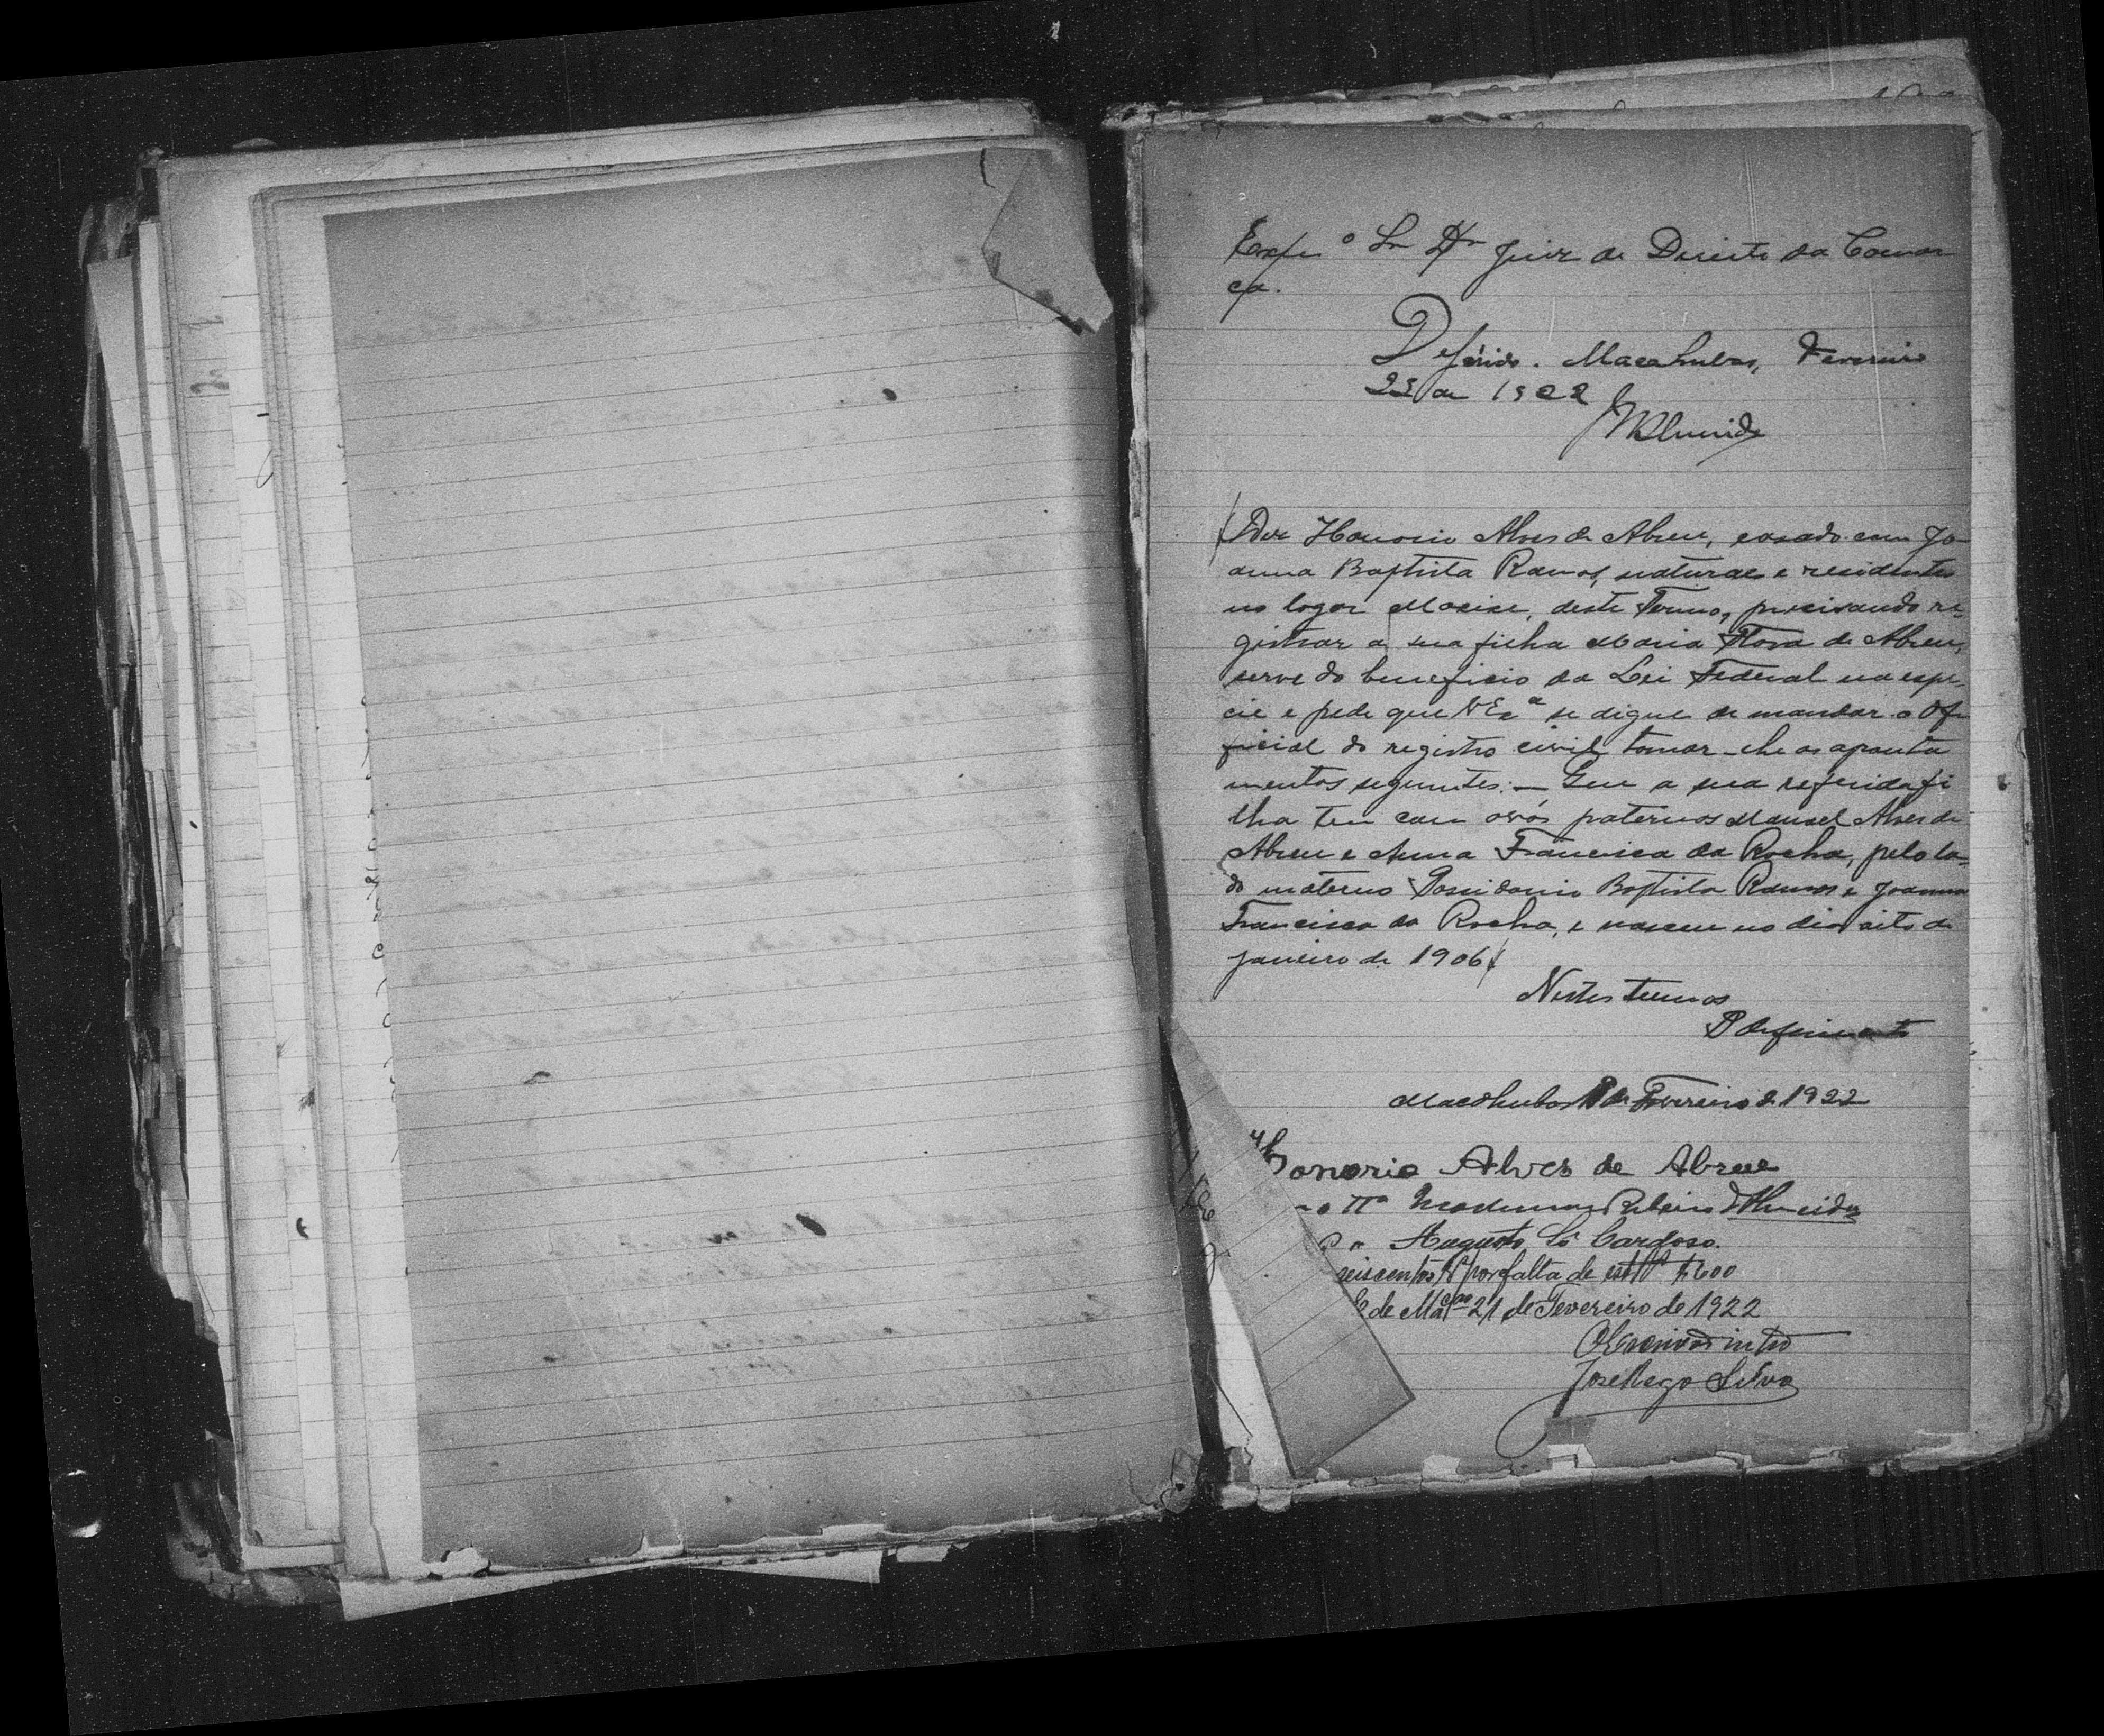 Sr Dr Juiz de Direito da Comar
ca.
Deferido. Macahubas, Fevereiro
de 1922
Almeida
Diz Honorio Alves de Abreu, casado com Jo-
anna Baptista Ramos, naturaes e residentes
no logar deste Termo, precisando re-
gistrar a sua filha Maria de Abreu,
serve do beneficio da Lei Federal na espe-
cie e pede que VExa se digne de mandar o Of-
ficial do registro civil tomar-lhe os aponta
mentos seguintes:— Que a sua referida fi
lha tem com avós paternos Manoel Alves de
Abreu e Anna Francisca da Rocha, pelo la-
do materno Possidonio Baptista Ramos e Joanna
Francisca da Rocha, e nasceu no dia oito de
Janeiro de 1906
Nestes termos
P deferimento
Macahubas de Fevereiro de 1922
Honorio Alves de Abreu
Ribeiro d'Almeida
Augusto Sá Cardoso.
seiscentos rs por falta de 600
de 21 de Fevereiro de 1922
O Escrivão
José Rego Silva